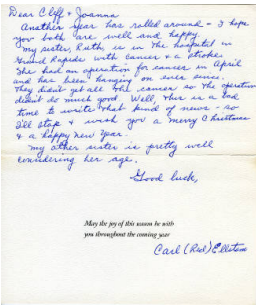 Dear Cliff & Joanna
Another year has rolled around - I hope
you both are well and happy.
My sister, Ruth, is in the hospital in
Grand Rapids with cancer & a stroke.
She had an operation for cancer in April
and has been hanging on ever since.
They didn't get all the cancer so the operation
didn't do much good. Well, this is a bad
time to write that kind of news - so
I'll stop & wish you a Merry Christmas
& a happy New Year.
My other sister is pretty well
considering her age.
Good luck,
May the joy of this season be with
you throughout the coming year
Carl (Red)